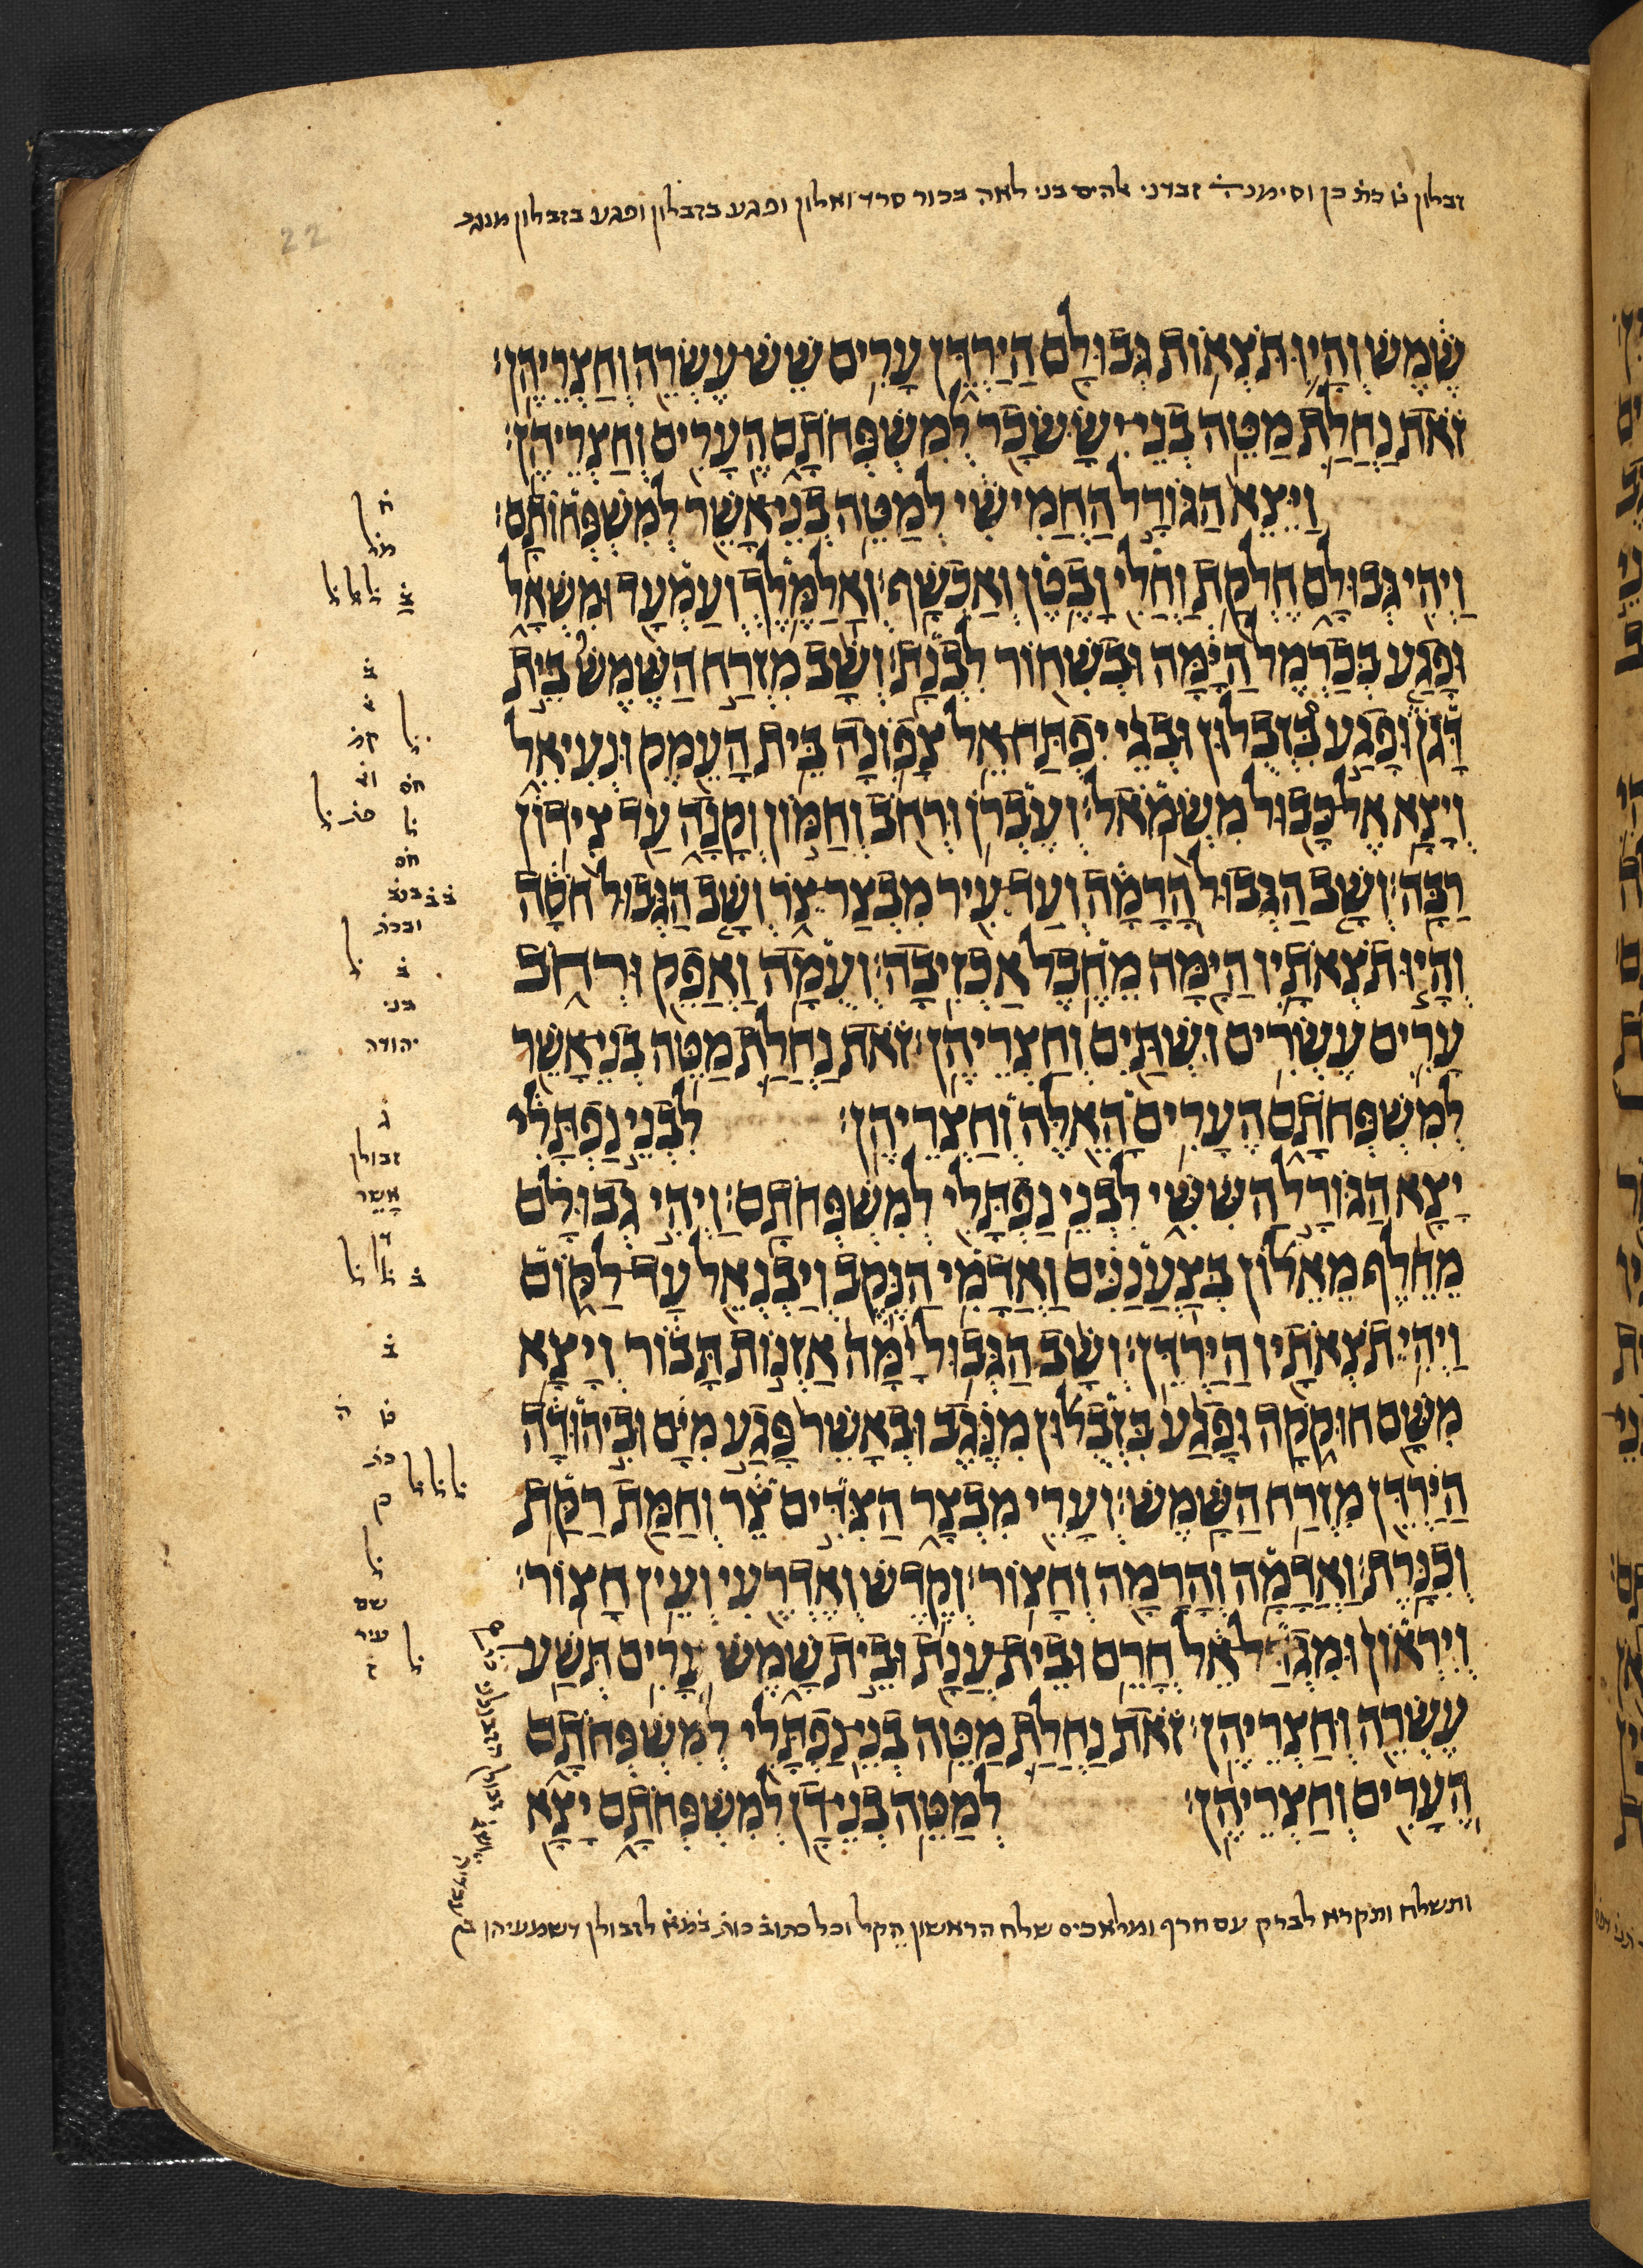 זבלון ט כת כן וסימנה זבדני אלהים בני לאה בכור סרד ואלון ופגע בזבלון ופגע בזבלון מנגב
22
שמש והיו תצאות גבולם הירדן ערים שש עשרה וחצריהן׃
זאת נחלת מטה בני יששכר למשפחתם הערים וחצריהן׃
ויצא הגורל החמישי למטה בני אשר למשפחותם׃
ויהי גבולם חלקת וחלי ובטן ואכשף׃ ואלמלך ועמעד ומשאל
ופגע בכרמל הימה ובשחור לבנת׃ ושב מזרח השמש בית
דגן ופגע בזבלון ובגי יפתח אל צפונה בית העמק ונעיאל
ויצא אל כבול משמאל׃ ועברן ורחב וחמון וקנה עד צידון
רבה׃ ושב הגבול הרמה ועד עיר מבצר צר ושב הגבול חסה
והיו תצאתיו הימה מחבל אכזיבה׃ ועמה ואפק ורחב
ערים עשרים ושתים וחצריהן׃ זאת נחלת מטה בני אשר
למשפחתם הערים האלה וחצריהן׃ לבני נפתלי
יצא הגורל הששי לבני נפתלי למשפחתם׃ ויהי גבולם
מחלף מאלון בצעננים ואדמי הנקב ויבנאל עד לקום
ויהי תצאתיו הירדן׃ ושב הגבול ימה אזנות תבור ויצא
משם חוקקה ופגע בזבלון מנגב ובאשר פגע מים וביהודה
הירדן מזרח השמש׃ וערי מבצר הצדים צר וחמת רקת
וכנרת׃ ואדמה והרמה וחצור׃ וקדש ואדרעי ועין חצור׃
ויראון ומגדל אל חרם ובית ענת ובית שמש ערים תשע
עשרה וחצריהן׃ זאת נחלת מטה בני נפתלי למשפחתם
הערים וחצריהן׃ למטה בני דן למשפחתם יצא
ותשלח ותקרא לברק עם חרף ומלאכים שלח הראשון הקל וכל כתוב כות לזבולן דשמעיהו
ח
ב
חס
חס
וככת
ב
בני
יהודה
ג
זבולן
אשר
ב
ב
ט
כת
שם
עיר